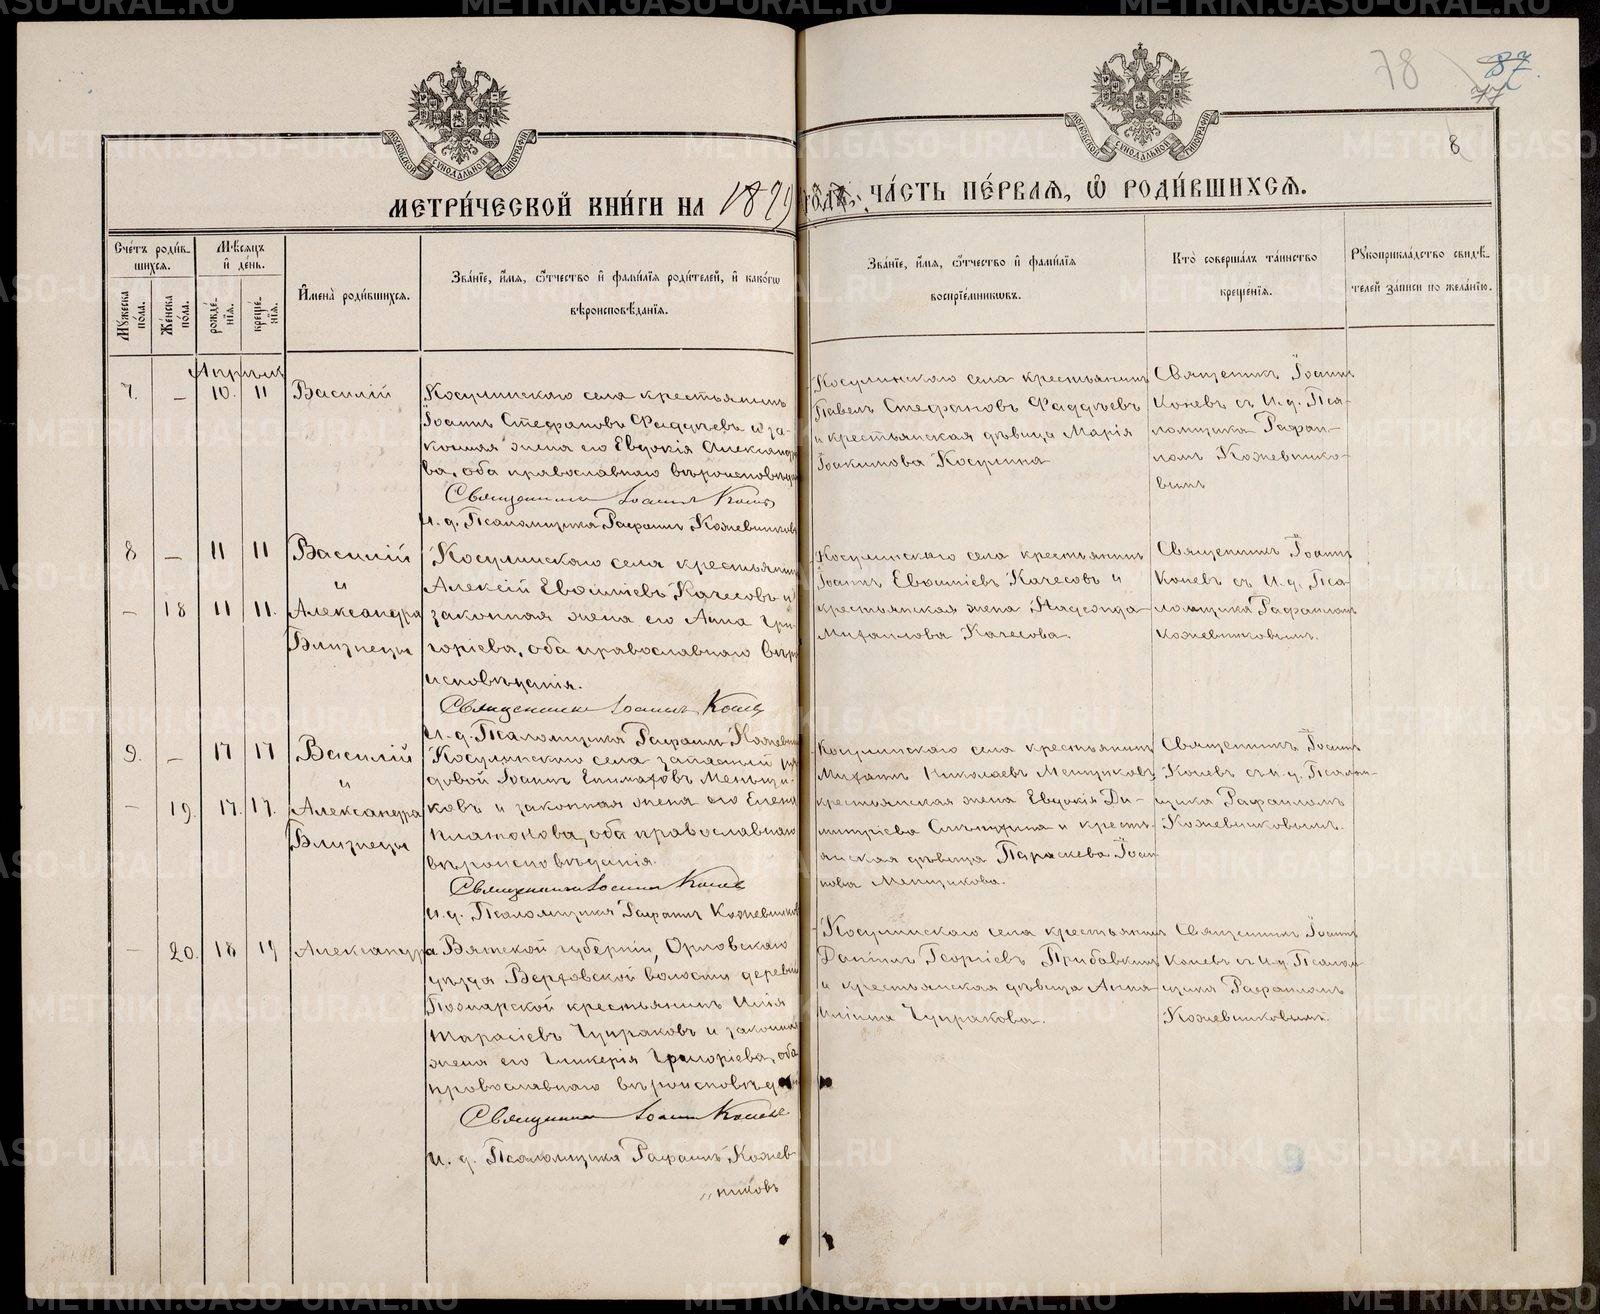 78
87.
77
8
МОСКОВСКОЙ СѴНОДАЛЬНОЙ ТИПОГРАФІИ
МОСКОВСКОЙ СѴНОДАЛЬНОЙ ТИПОГРАФІИ
МЕТРИ́ЧЕСКОЙ КНИ́ГИ НА 1899 го́дъ, ЧА́СТЬ ПЕ́РВАѦ, Ѡ҆ РОДИ́ВШИХСѦ.
Сче́тъ роди́в-
шихсѧ.
Мѣ́сѧцъ
и҆ де́нь.
Мꙋ́жеска
по́ла.
Же́нска
по́ла.
рожде́-
нїѧ.
креще́-
нїѧ.
И҆мена̀ роди́вшихсѧ.
Зва́нїе, и҆́мѧ, ѻ҆́тчество и҆ фами́лїѧ роди́телей, и҆ како́гѡ
вѣроисповѣ́данїѧ.
Зва́нїе, и҆́мѧ, ѻ҆́тчество и҆ фами́лїѧ
воспрїе́мникѡвъ.
Кто̀ соверша́лъ та́инство
креще́нїѧ.
Рꙋкоприкла́дство свидѣ́-
телей за́писи по жела́нїю.
Апрѣль
7. – 10. 11 Василій
Косулинскаго села крестьянинъ
Іоаннъ Стефановъ Фаддѣевъ и за-
конная жена его Евдокія Александро
ва, оба православнаго вѣроисповѣда
Священникъ Іоаннъ Коневъ
И. д. Псаломщика Рафаилъ Кожевниковъ
Косулинскаго села крестьянинъ
Павелъ Стефановъ Фаддѣевъ
и крестьянская дѣвица Марія
Іоакимова Косулина
Священникъ Іоаннъ
Коневъ съ И. д. Пса-
ломщика Рафаи-
ломъ Кожевнико-
вымъ
8 – 11 11 Василій
и
– 18 11 11. Александра
Близнецы
Косулинскаго села крестьянинъ
Алексій Евѳиміевъ Качесовъ и
законная жена его Анна Гри-
горіева, оба православнаго вѣро
исповѣданія.
Священникъ Іоаннъ Коневъ
И. д. Псаломщика Рафаилъ Кожевни
Косулинскаго села крестьянинъ
Іоаннъ Евѳиміевъ Качесовъ и
крестьянская жена Надежда
Михаилова Качесова.
Священникъ Іоаннъ
Коневъ съ И. д. Пса-
ломщика Рафаиломъ
Кожевниковымъ.
9. – 17 17 Василій
и
– 19. 17. 17. Александра
Близнецы
Косулинскаго села запасный ря
довой Іоаннъ Епимаховъ Меньщи-
ковъ и законная жена его Елена
Платонова, оба православнаго
вѣроисповѣданія.
Священникъ Іоаннъ Коневъ
И. д. Псаломщика Рафаилъ Кожевников
Косулинскаго села крестьянинъ
Михаилъ Николаевъ Меньщиковъ,
крестьянская жена Евдокія Ди-
митріева и кресть-
янская дѣвица Параскева Іоан
нова Меньщикова.
Священникъ Іоаннъ
Коневъ съ и. д. Псалом-
щика Рафаиломъ
Кожевниковымъ.
– 20. 18 19 Александра
Вятской губерніи, Орловскаго
уѣзда Верховской волости деревни
крестьянинъ Илія
Тарасіевъ Чупраковъ и законная
жена его Гликерія Григоріева, оба
православнаго вѣроисповѣда
Священникъ Іоаннъ Коневъ
И. д. Псаломщика Рафаилъ Кожев-
„никовъ
Косулинскаго села крестьянинъ
Даніилъ Георгіевъ Прибавкинъ
и крестьянская дѣвица Анна
Иліина Чупракова.
Священникъ Іоаннъ
Коневъ съ И. д. Псалом-
щика Рафаиломъ
Кожевниковымъ.
9
METRIKI.GASO-URAL.RU